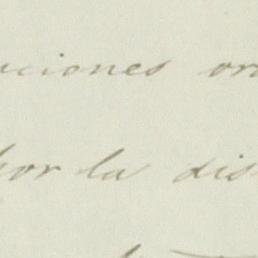 uciones or
por la dis